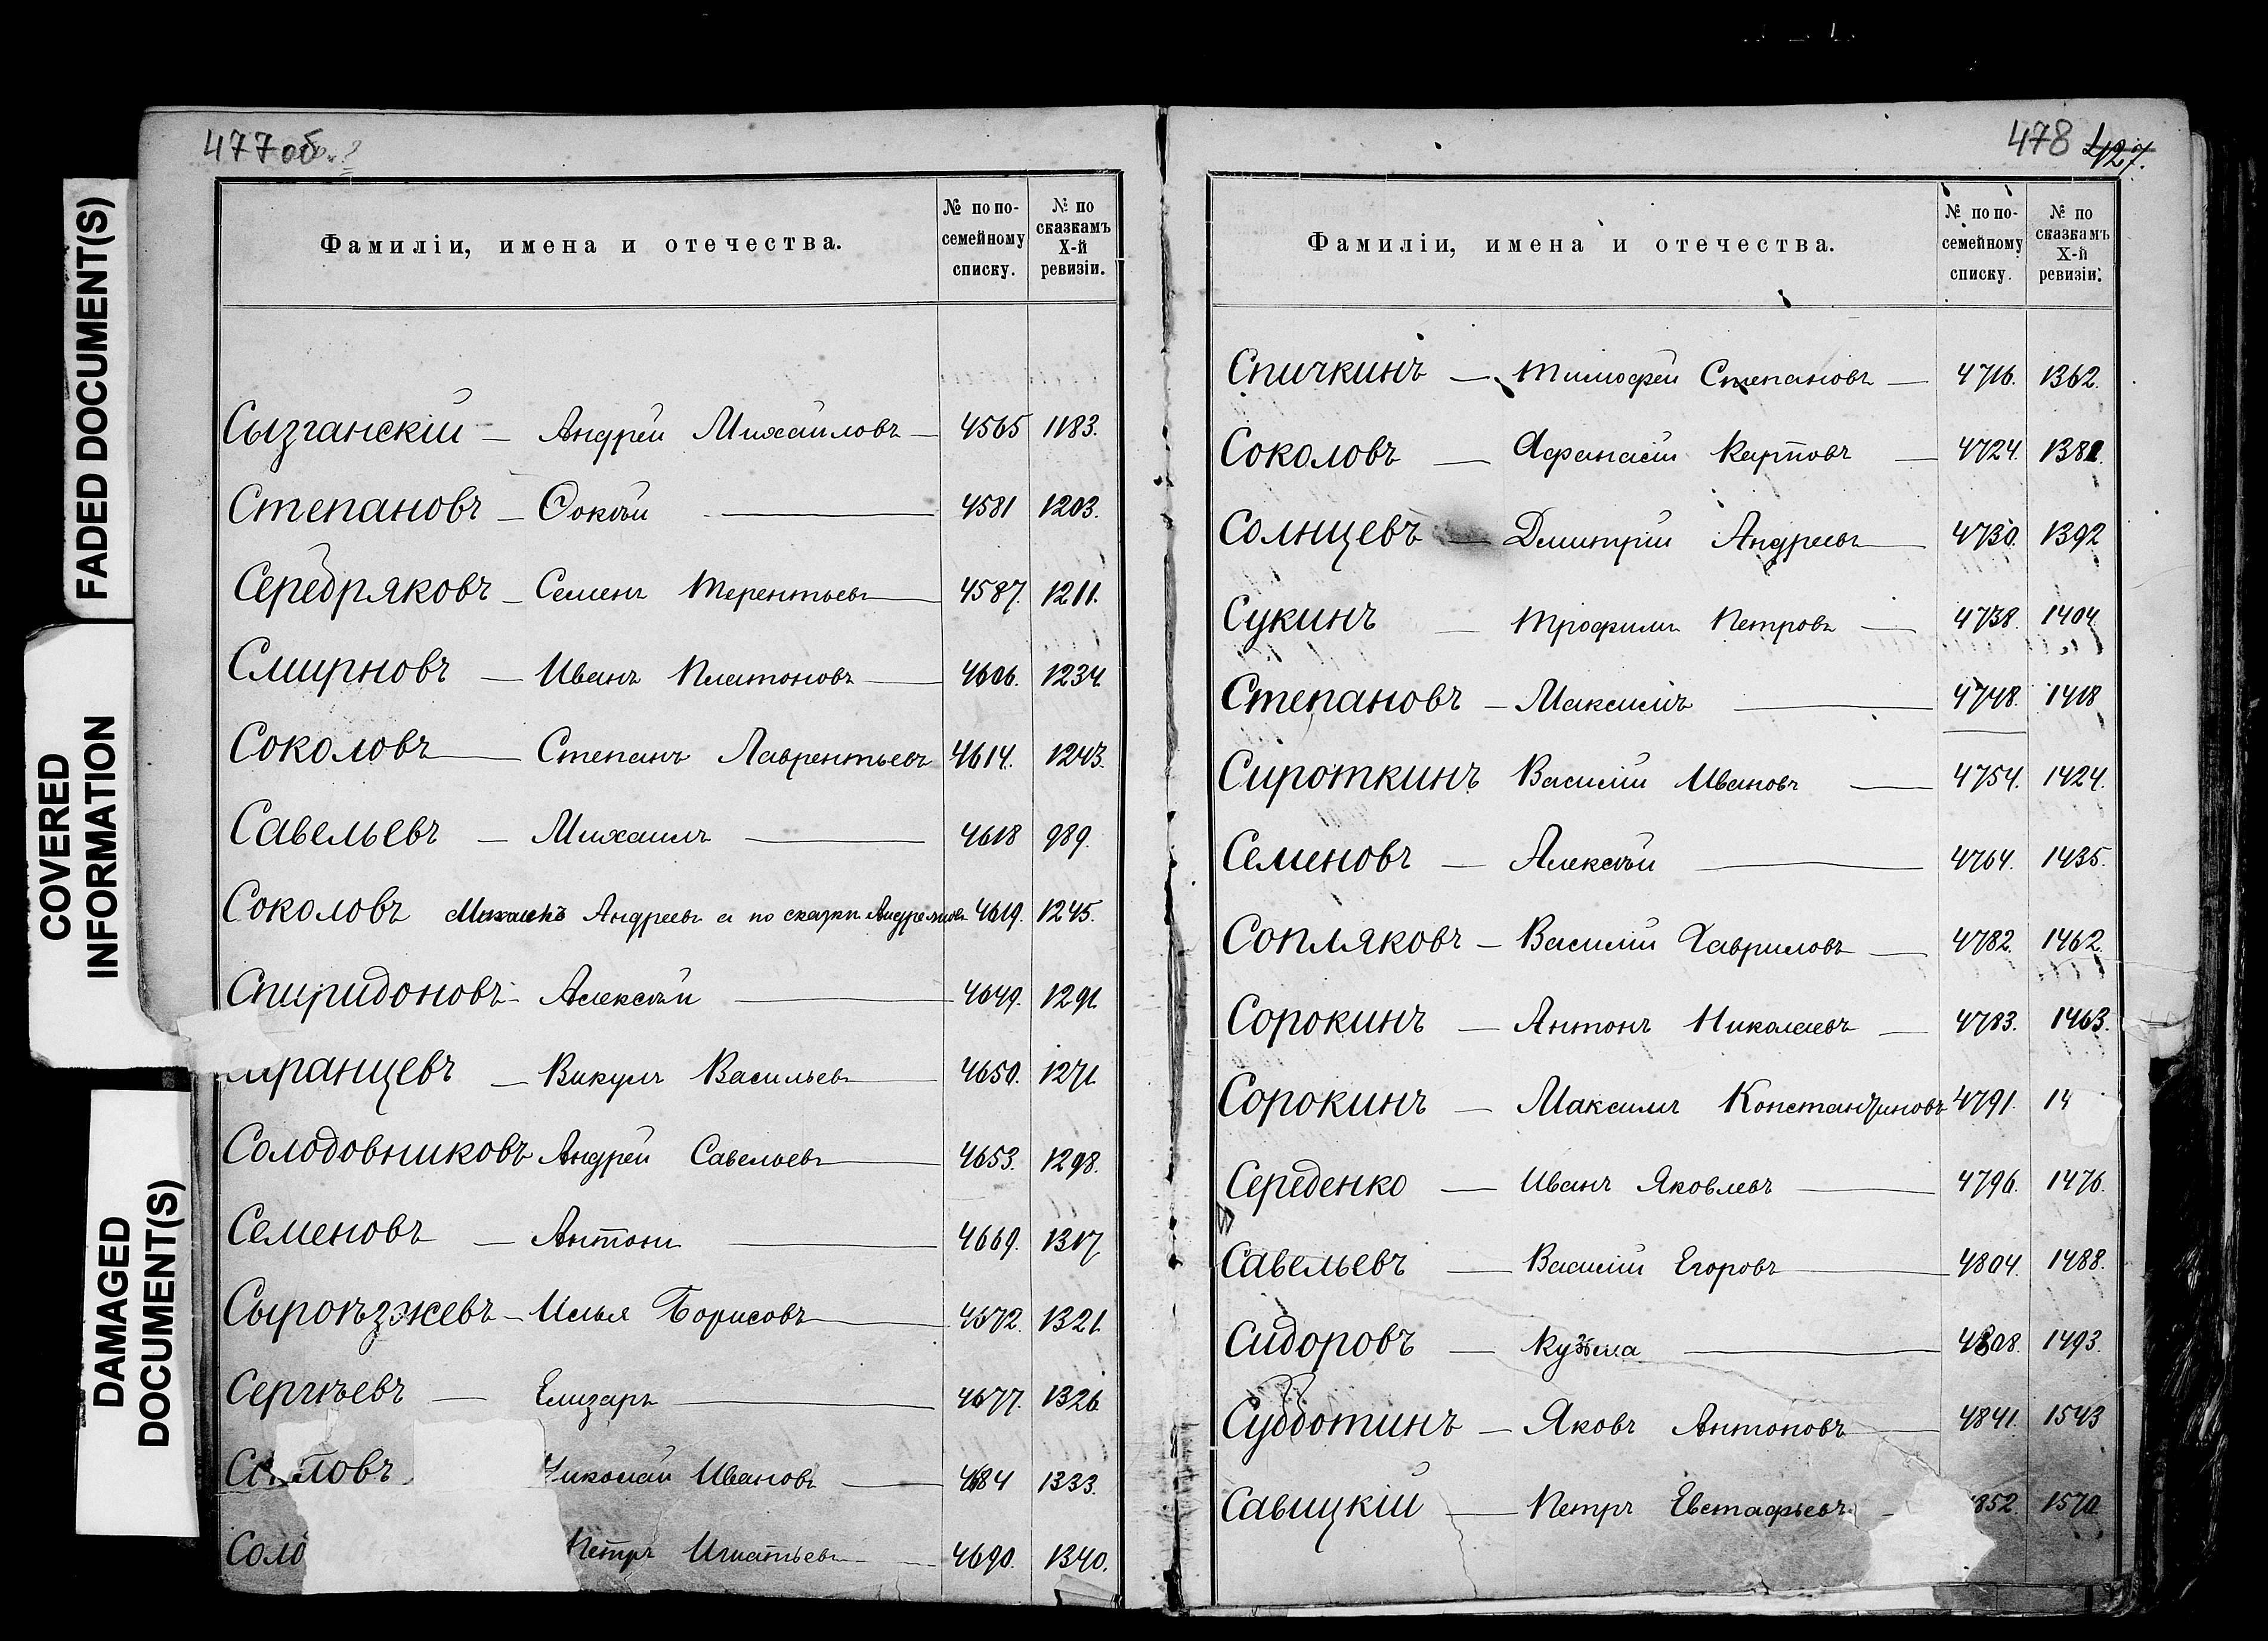 477 об.
Фамиліи, имена и отечества.
№ по по-
семейному
списку.
№ по
сказкамъ
X-й
ревизіи.
Сызганскій — Андрей Михайловъ — 4565 1183.
Степановъ — Фокъй — 4581 1203.
Серебряковъ — Семенъ Терентьевъ — 4587. 1211.
Смирновъ — Иванъ Платоновъ — 4606. 1234.
Соколовъ — Степанъ Лаврентьевъ 4614. 1243.
Савельевъ — Михаилъ — 4618 989.
Соколовъ Андреевъ а по сказки 4619. 1245.
Спиридоновъ — Алексѣй — 4649. 1291.
Викулъ Васильевъ — 4650. 1271.
Солодовниковъ Андрей Савельевъ — 4653. 1298.
Семеновъ — Антонъ — 4669. 1317.
Сыроѣзжевъ — Илья Борисовъ — 4672. 1321.
Сергѣевъ — Елизаръ — 4677. 1326
Николай Ивановъ — 4684 1333.
Соло Петръ Игнатьевъ — 4690. 1340.
478 427.
Фамиліи, имена и отечества.
№ по по-
семейному
списку.
№ по
сказкамъ
X-й
ревизіи.
Спичкинъ — Тимофей Степановъ — 4716. 1362.
Соколовъ — Афанасій Карповъ — 4724. 1381.
Солнцевъ — Дмитрій Андреевъ — 4730. 1392
Сукинъ — Трофимъ Петровъ — 4738. 1404
Степановъ — Максимъ — 4748. 1418
Сироткинъ Василій Ивановъ — 4754. 1424.
Семеновъ — Алексѣй — 4764. 1435.
Сопляковъ — Василій Гавриловъ — 4782. 1462.
Сорокинъ — Антонъ Николаевъ — 4783. 1463.
Сорокинъ — Максимъ Константиновъ 4791. 14
Середенко — Иванъ Яковлевъ — 4796. 1476.
Савельевъ — Василій Егоровъ — 4804. 1488.
Сидоровъ — Кузьма — 4808. 1493.
Субботинъ — Яковъ Антоновъ — 4841. 1543
Савицкій — Петръ Евстафьевъ — 852. 1570
FADED DOCUMENT(S)
COVERED
INFORMATION
DAMAGED
DOCUMENT(S)